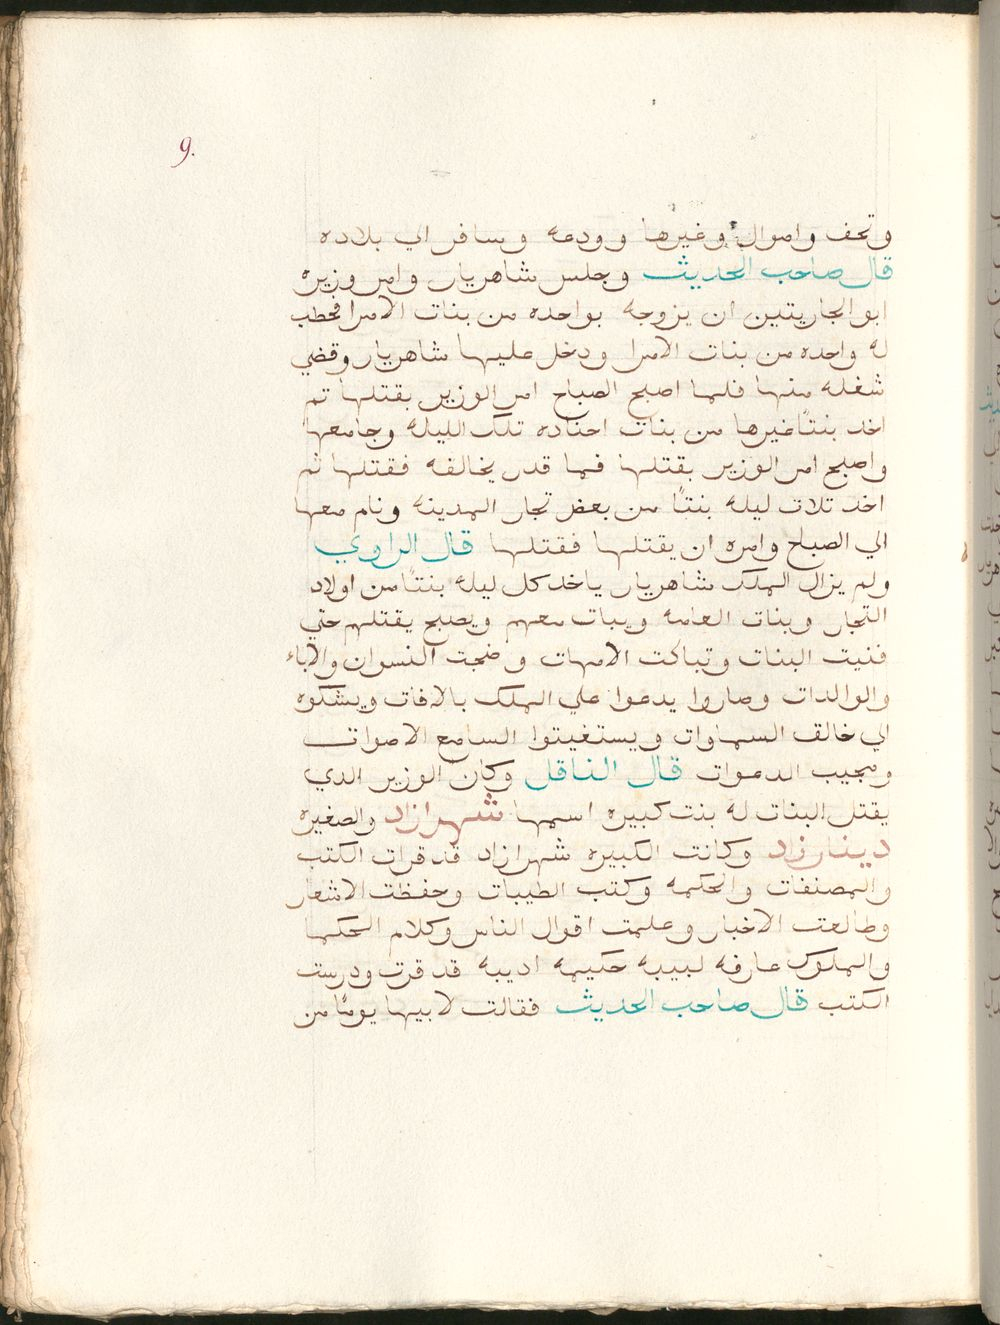 9.
وتحف واموال وغيرها وودعه وسافر الي بلاده
قال صاحب الحديث وجلس شاهريار وامر وزيره
ابو الجاريتين ان يزوجه بواحده من بنات الامرا فخطب
له واحده من بنات الامرا ودخل عليها شاهريار وقضي
شغله منها فلما اصبح الصباح امر الوزير بقتلها تم
اخد بنتًا غيرها من بنات اجناده تلك الليله وجامعها
واصبح امر الوزير بقتلها فما قدر يخالفه فقتلها ثم
اخد تلات ليله بنتًا من بعض تجار المدينه ونام معها
الي الصباح وامره ان يقتلها فقتلها قال الراوي
ولم يزال الملك شاهريار ياخد كل ليله بنتًا من اولاد
التجار وبنات العامه ويبات معهم ويصبح يقتلهم حتي
فنيت البنات وتباكت الامهات وضجت النسوان والاباء
والوالدات وصاروا يدعوا علي الملك بالافات ويشكوه
الي خالق السماوات ويستغيتوا السامع الاصوات
ومجيب الدعوات قال الناقل وكان الوزير الدي
يقتل البنات له بنت كبيره اسمها شهرازاد والصغيره
دينارزاد وكانت الكبيره شهرازاد قد قرات الكتب
والمصنفات والحكمه وكتب الطيبات وحفظت الاشعار
وطالعت الاخبار وعلمت اقوال الناس وكلام الحكما
والملوك عارفه لبيبه حكيمه اديبه قد قرت ودرست
الكتب قال صاحب الحديث فقالت لابيها يومًا من